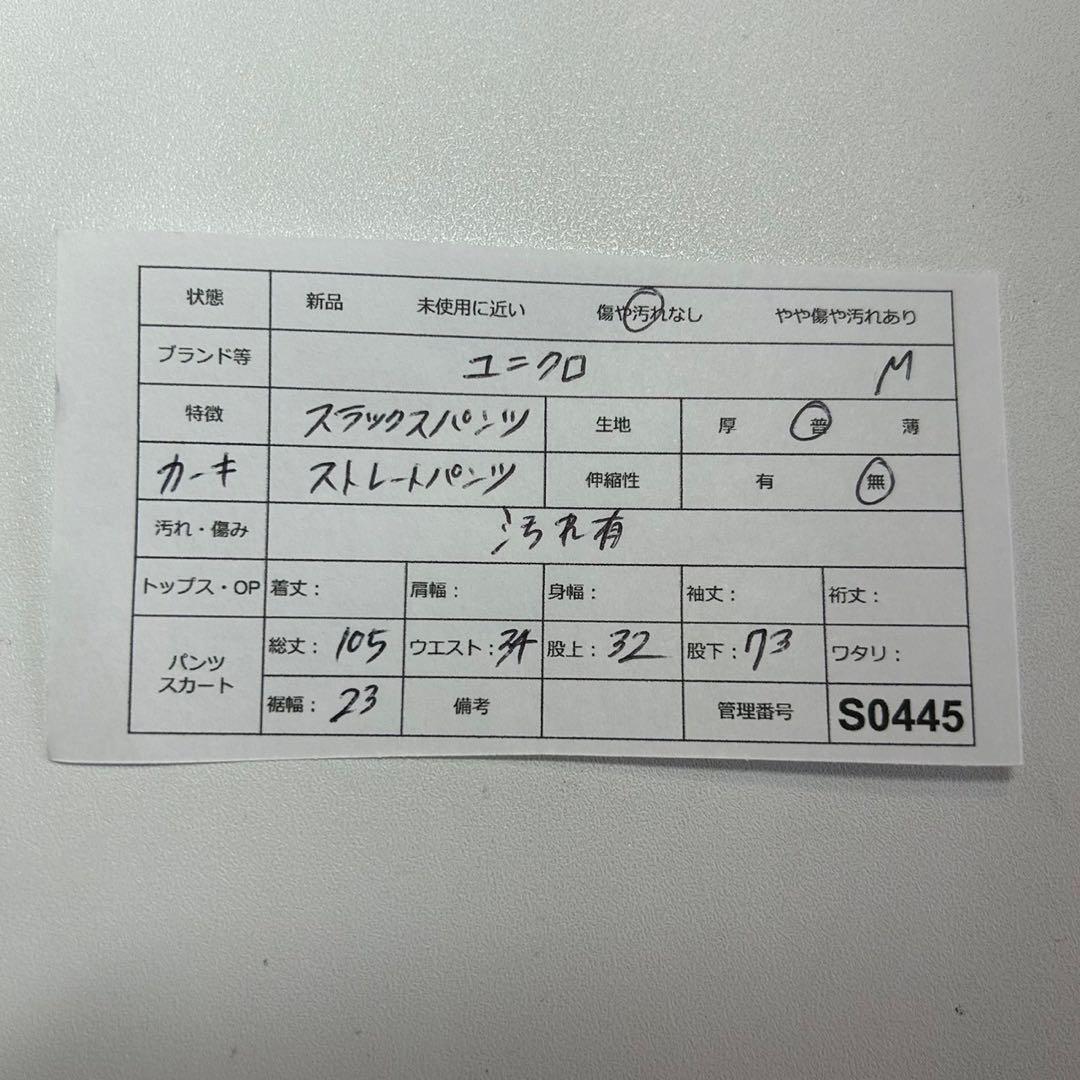 状態 新品 未使用に近い 傷や汚れなし やや傷や汚れあり
ブランド等 ユニクロ M
特徴 スラックスパンツ 生地 厚 普 薄
カーキ ストレートパンツ 伸縮性 有 無
汚れ・傷み 汚れ有
トップス・OP 着丈: 肩幅: 身幅: 袖丈: 裄丈:
パンツ スカート 総丈: 105 ウエスト: 34 股上: 32 股下: 73 ワタリ:
裾幅: 23 備考 管理番号 S0445